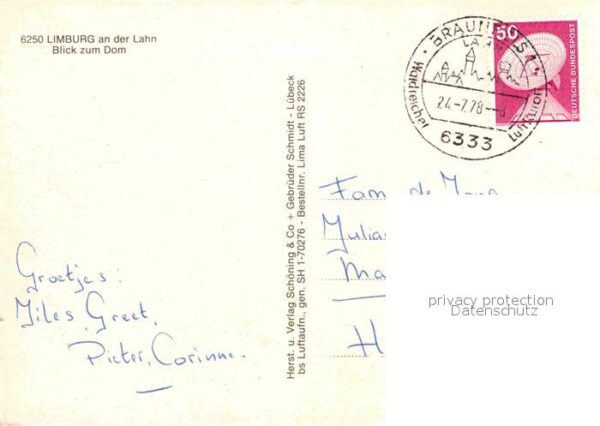 6250 LIMBURG an der Lahn
Blick zum Dom
50
DEUTSCHE BUNDESPOST
LAHN
Waldreicher
Luftkurort
24.-7.78-
6333
Herst. u. Verlag Schöning & Co + Gebrüder Schmidt - Lübeck
bs Luftaufn., gen. SH 1-70276 - Bestellnr. Lima Luft RS 2226
Fam. de
Ma
H
privacy protection
Datenschutz
Groetjes:
Miles, Greet,
Pieter, Corinne.